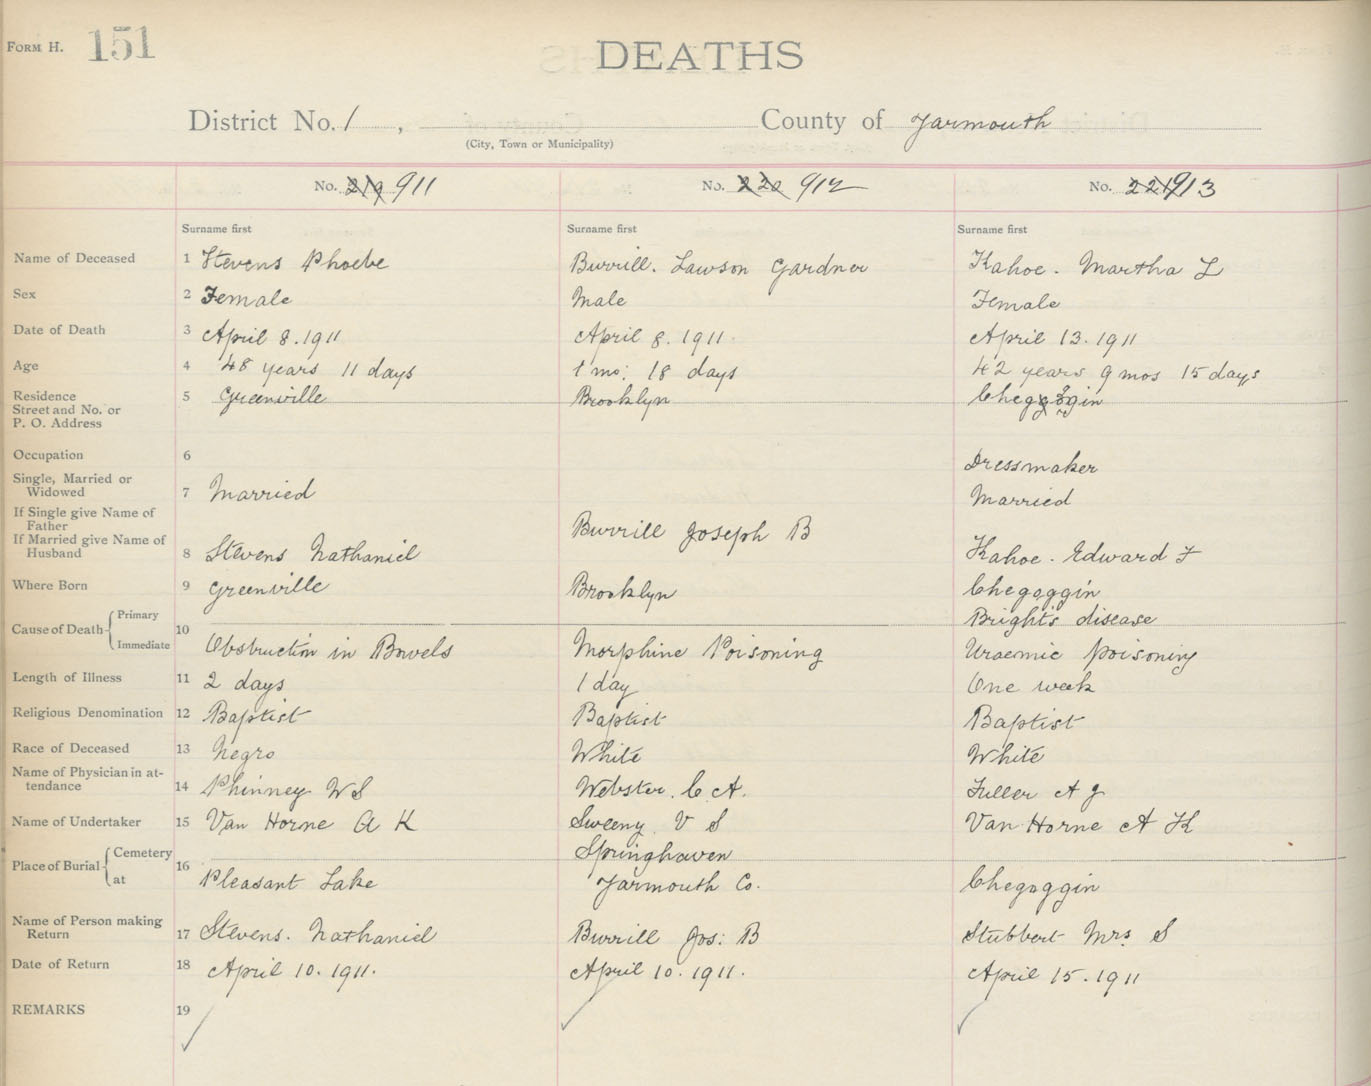 FORM H. 151
DEATHS
District No. 1, County of Yarmouth
(City, Town or Municipality)
No. 219 911 No. 220 912 No. 221 913
Surname first Surname first Surname first
Name of Deceased 1 Stevens Phoebe Burrill. Lawson Gardner Kahoe. Martha L
Sex 2 Female Male Female
Date of Death 3 April 8. 1911 April 8. 1911. April 13. 1911
Age 4 48 years 11 days 1 mo: 18 days 42 years 9 mos 15 days
Residence 5 Greenville Brooklyn Cheggogin
Street and No. or
P. O. Address
Occupation 6 Dressmaker
Single, Married or
Widowed 7 Married Married
If Single give Name of
Father Burrill Joseph B
If Married give Name of
Husband 8 Stevens Nathaniel Kahoe. Edward F
Where Born 9 Greenville Brooklyn Chegoggin
Cause of Death Primary 10 Bright's disease
Immediate Obstruction in Bowels Morphine Poisoning Uraemic poisoning
Length of Illness 11 2 days 1 day One week
Religious Denomination 12 Baptist Baptist Baptist
Race of Deceased 13 Negro White White
Name of Physician in at-
tendance 14 Phinney W S Webster. C A. Fuller A J
Name of Undertaker 15 Van Horne A K Sweeny V S Van Horne A K
Place of Burial Cemetery 16 Springhaven
at Pleasant Lake Yarmouth Co. Chegoggin
Name of Person making
Return 17 Stevens. Nathaniel Burrill Jos: B Stubbert Mrs S
Date of Return 18 April 10. 1911. April 10. 1911. April 15. 1911
REMARKS 19